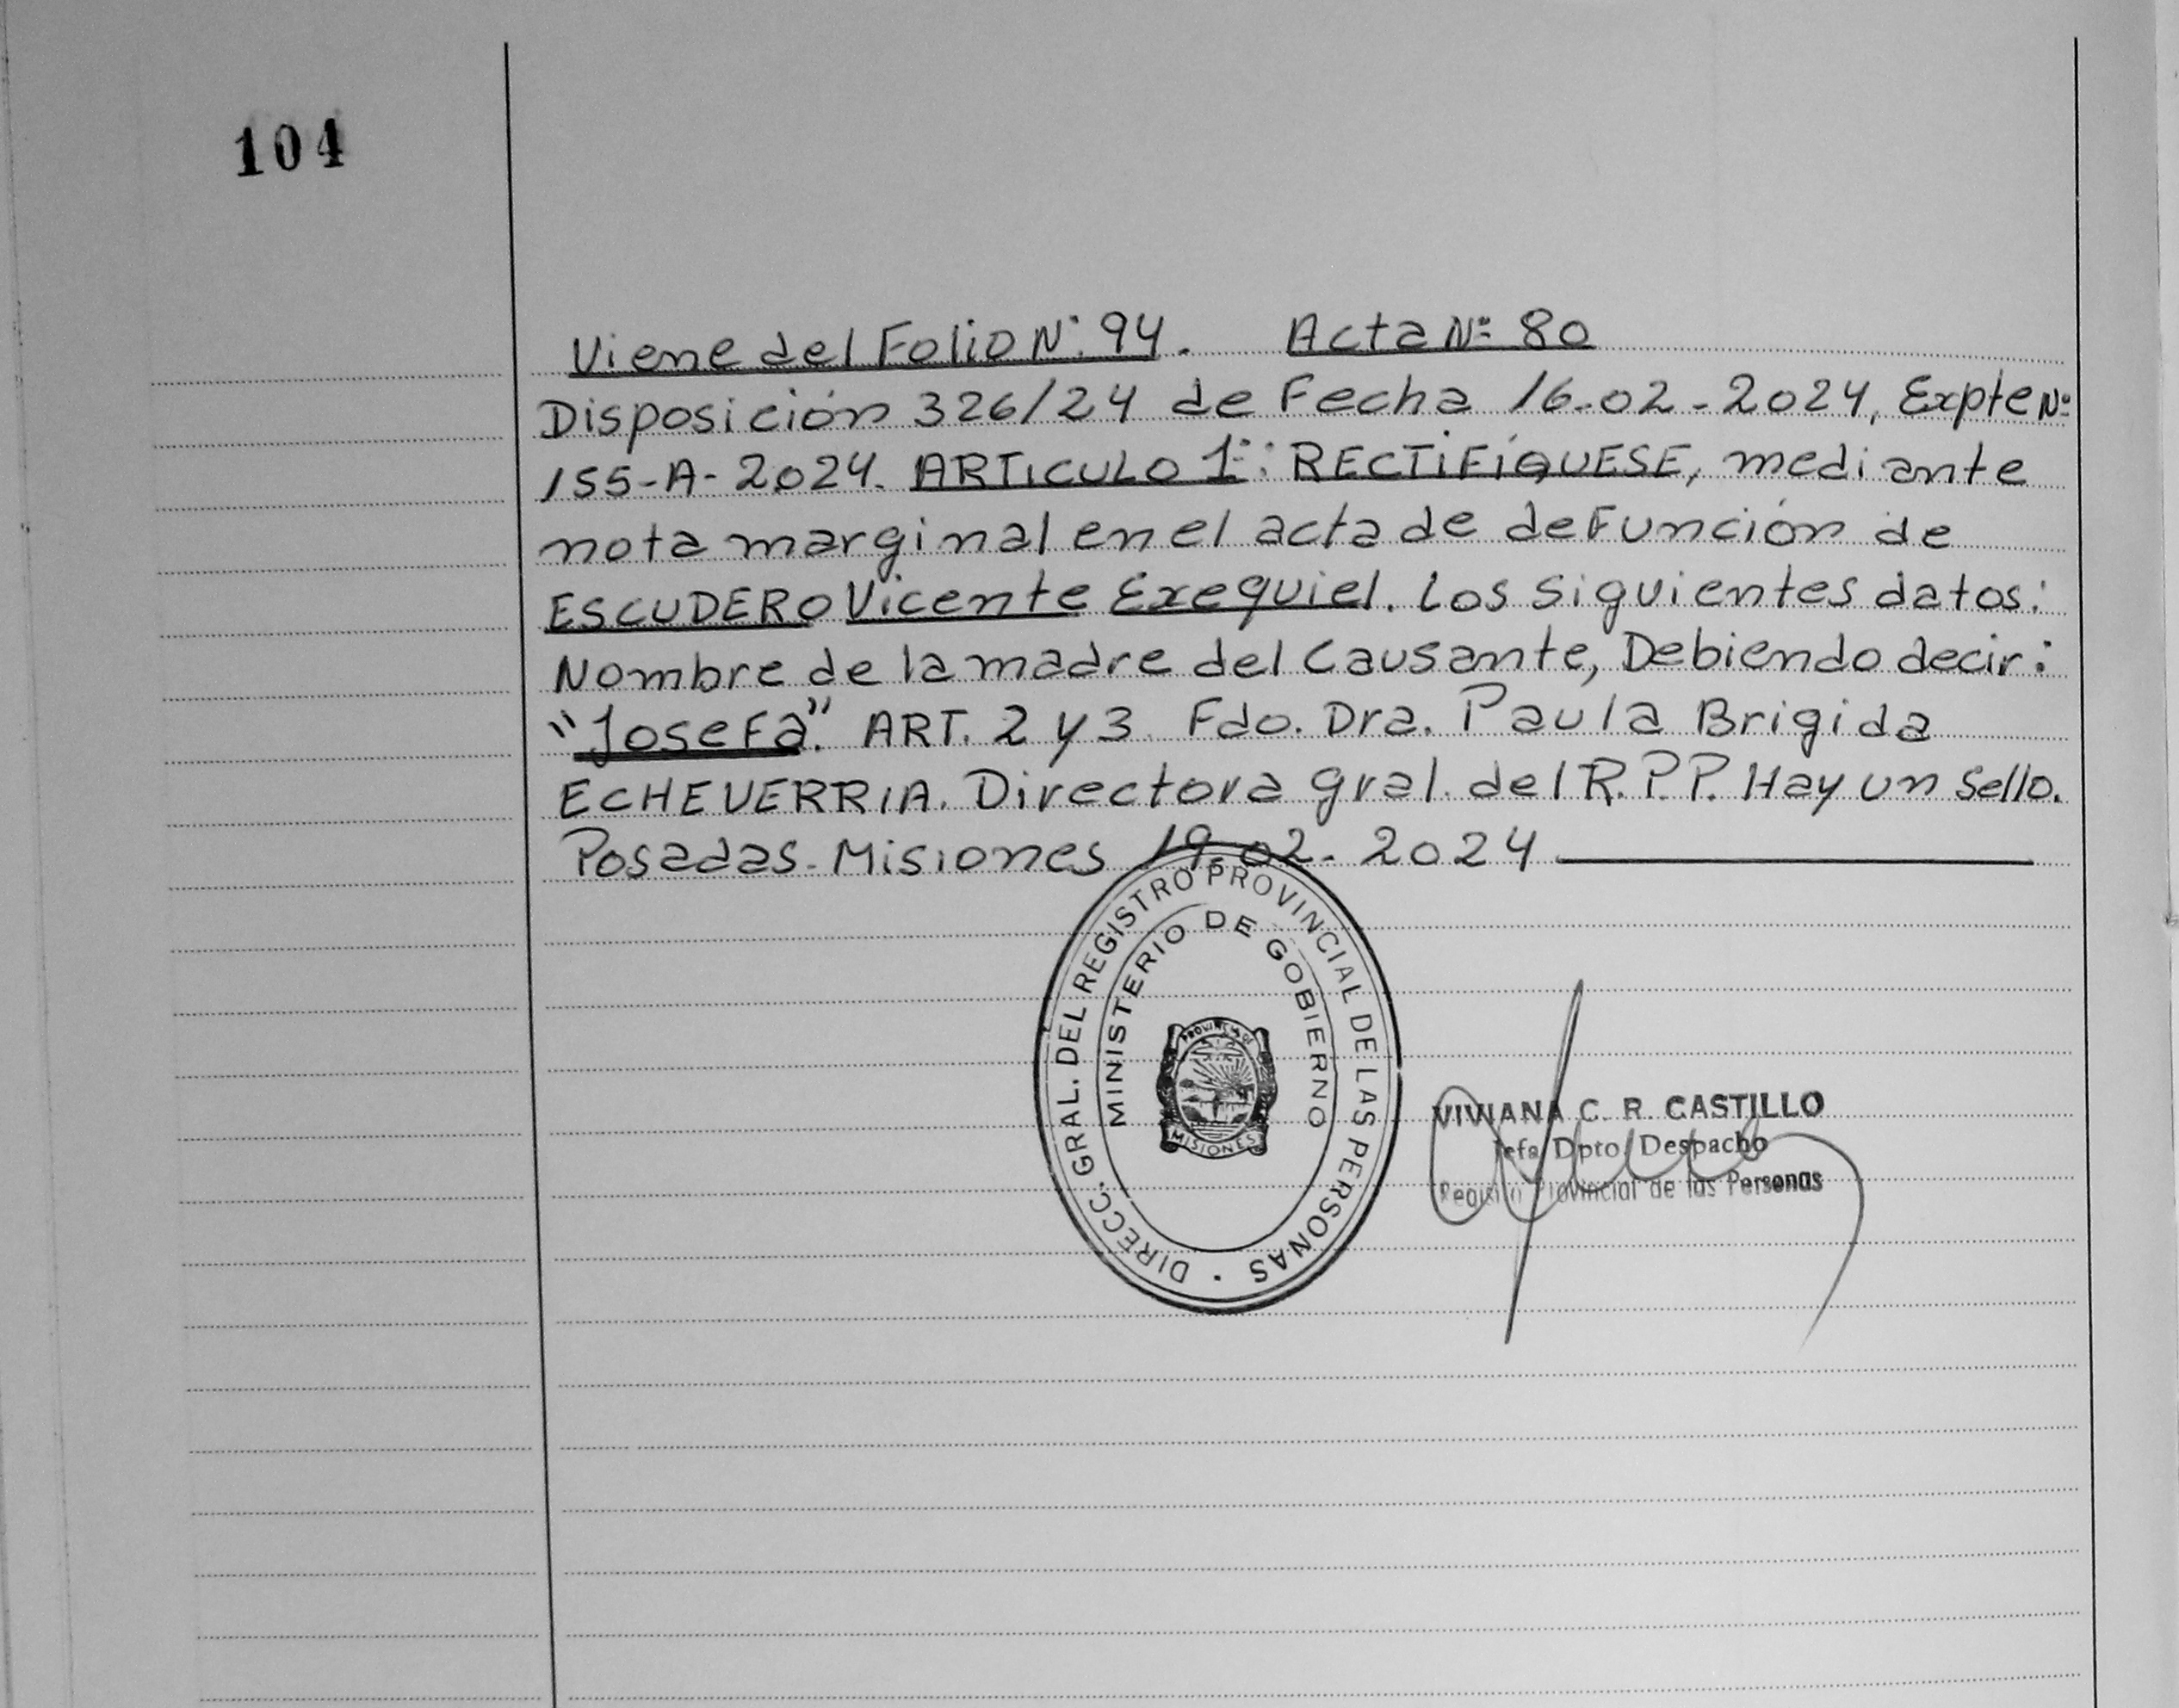 104
Viene del Folio Nº: 94. Acta Nº 80
Disposición 326/24 de Fecha 16-02-2024, Expte Nº
155-A-2024. ARTICULO 1º: RECTIFÍQUESE, mediante
nota marginal en el acta de deFunción de
ESCUDERO Vicente Exequiel. Los siguientes datos:
Nombre de la madre del Causante, Debiendo decir:
"JoseFa". ART. 2 y 3 Fdo. Dra. Paula Brigida
ECHEVERRIA. Directora gral. del R.P.P. Hay un Sello.
Posadas-Misiones 19-02-2024
DIRECC. GRAL. DEL REGISTRO PROVINCIAL DE LAS PERSONAS
MINISTERIO DE GOBIERNO
PROVINCIA DE
MISIONES
VIVIANA C. R. CASTILLO
Jefa Dpto. Despacho
Registro Provincial de las Personas